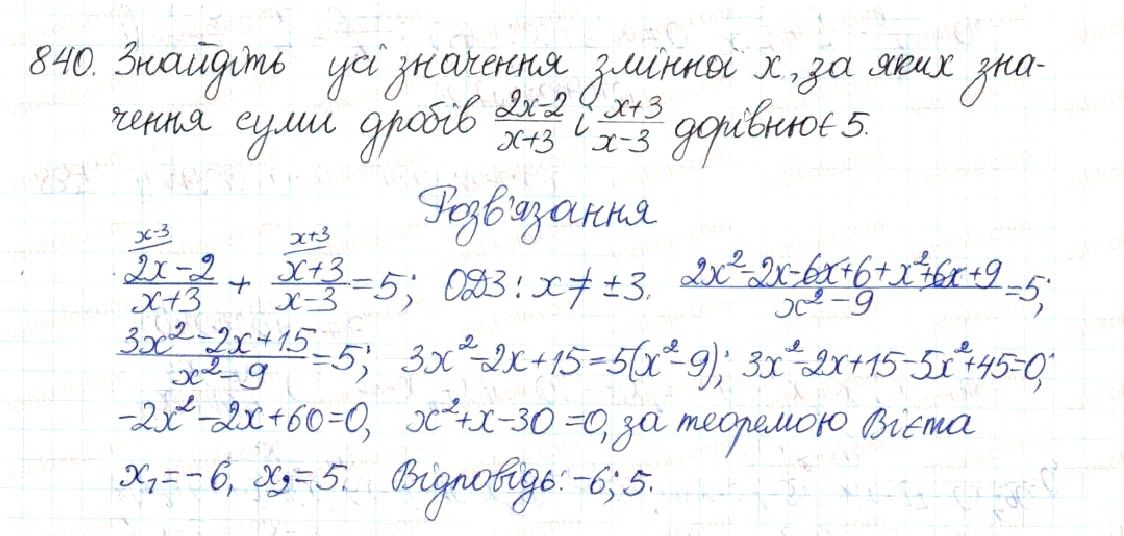 840. Знайдіть усі значення змінної x, за яких зна-
чення суми дробів (2x-2)/(x+3) і (x+3)/(x-3) дорівнює 5.
Розв'язання
x-3 x+3
(2x-2)/(x+3) + (x+3)/(x-3) = 5; ОДЗ: x ≠ ±3. (2x²-2x-6x+6+x²+6x+9)/(x²-9) = 5;
(3x²-2x+15)/(x²-9) = 5; 3x²-2x+15=5(x²-9); 3x²-2x+15-5x²+45=0;
-2x²-2x+60=0, x²+x-30=0, за теоремою Вієта
x₁=-6, x₂=5. Відповідь: -6; 5.